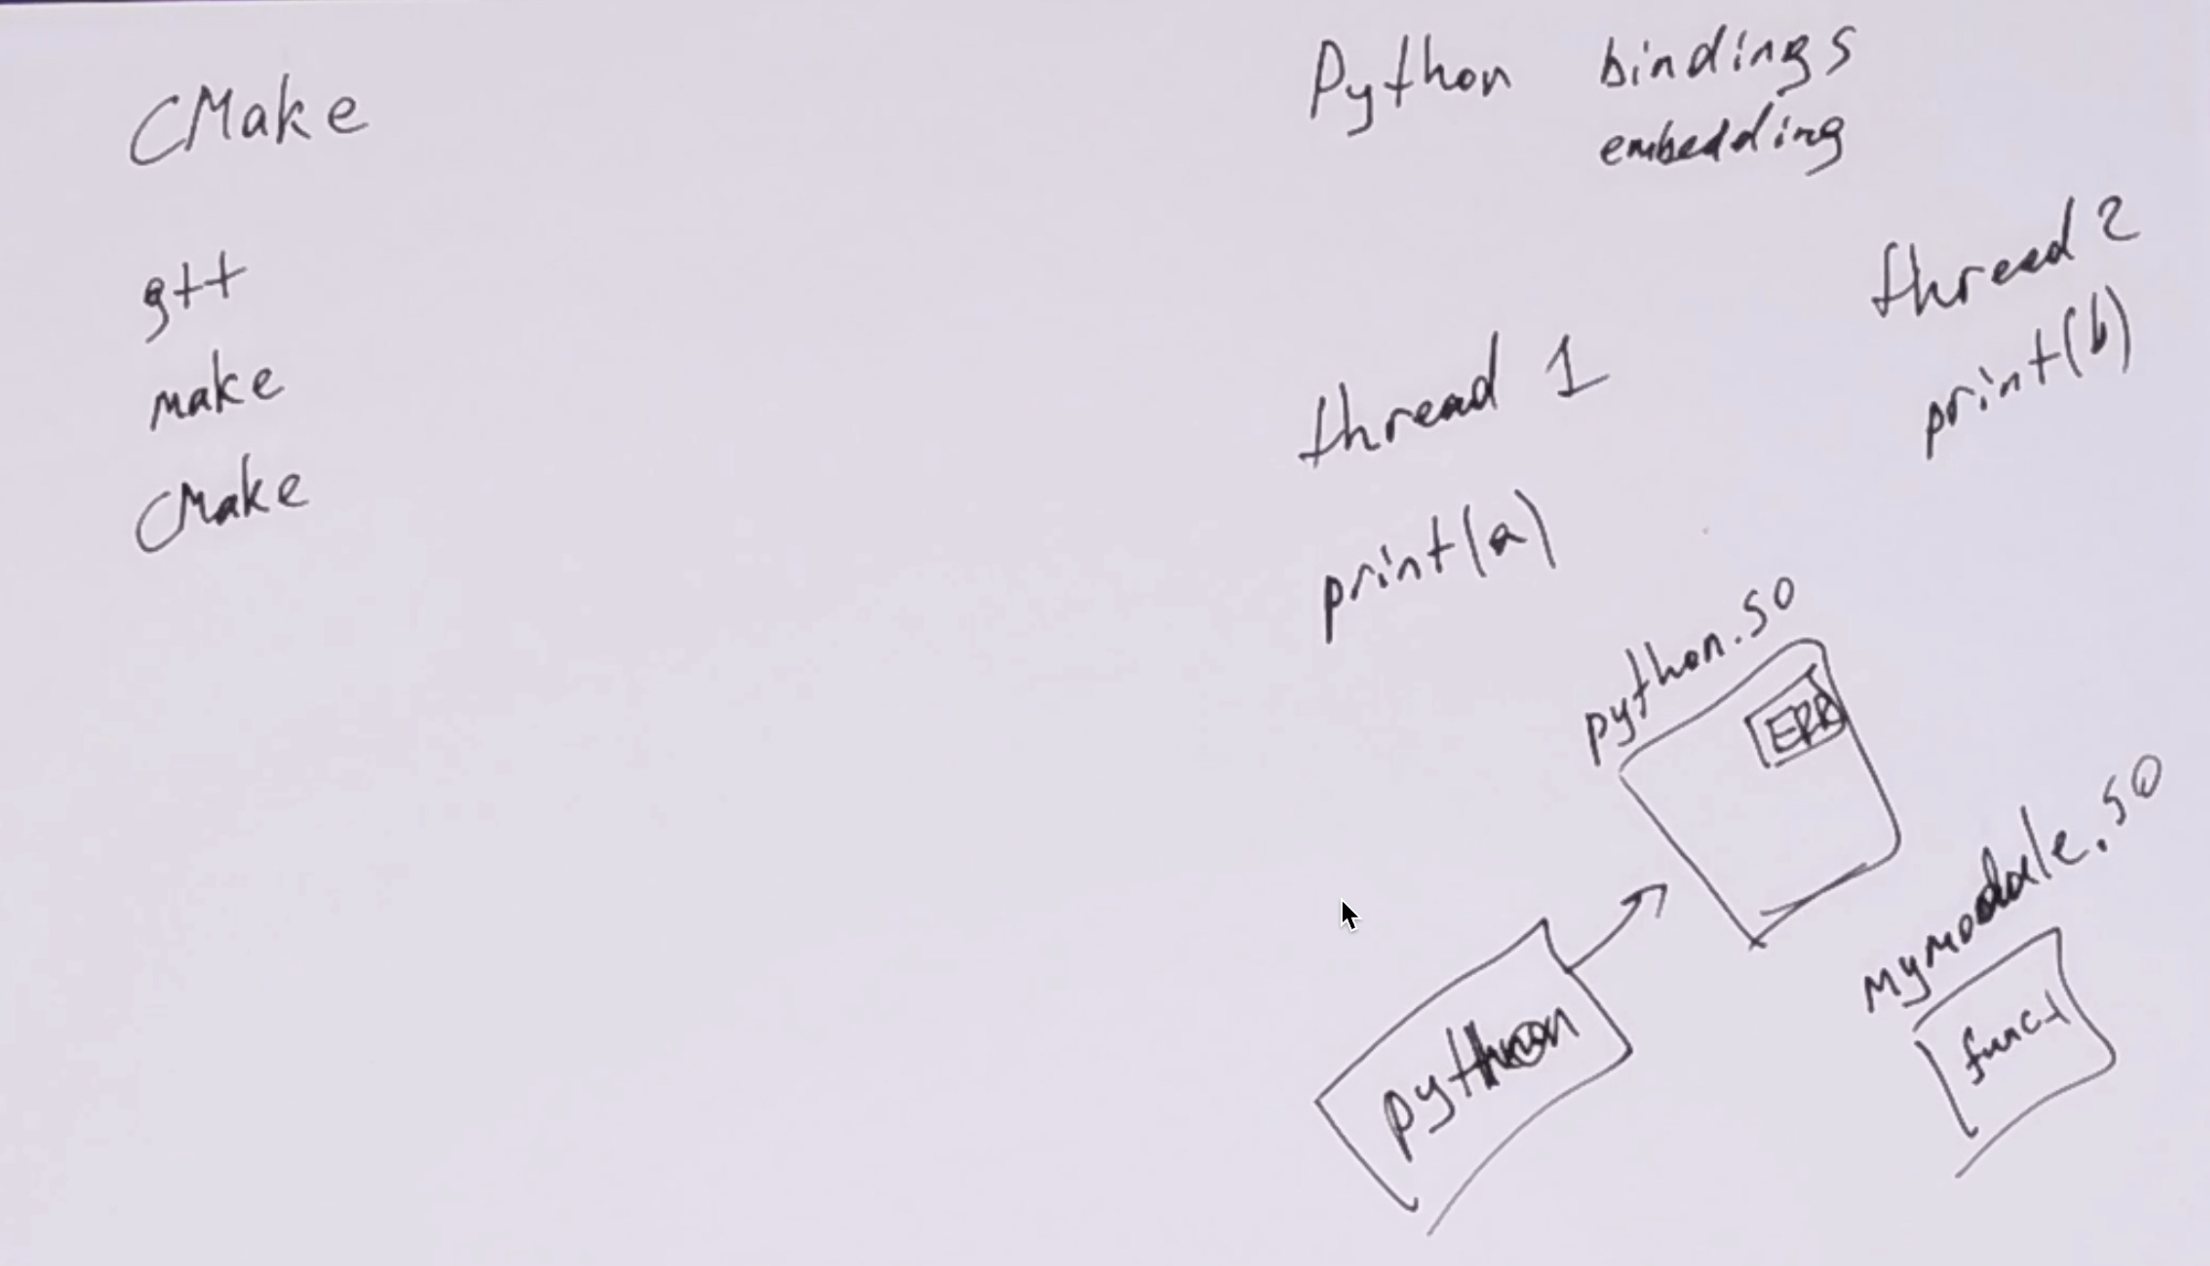 CMake
g++
make
CMake
Python bindings
embedding
thread 1
print(a)
thread 2
print(b)
python.so
ERR
python
mymodule.so
funct